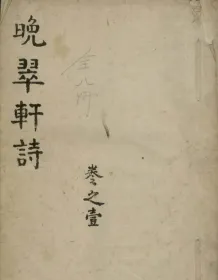 晚翠軒詩
全八冊
卷之壹